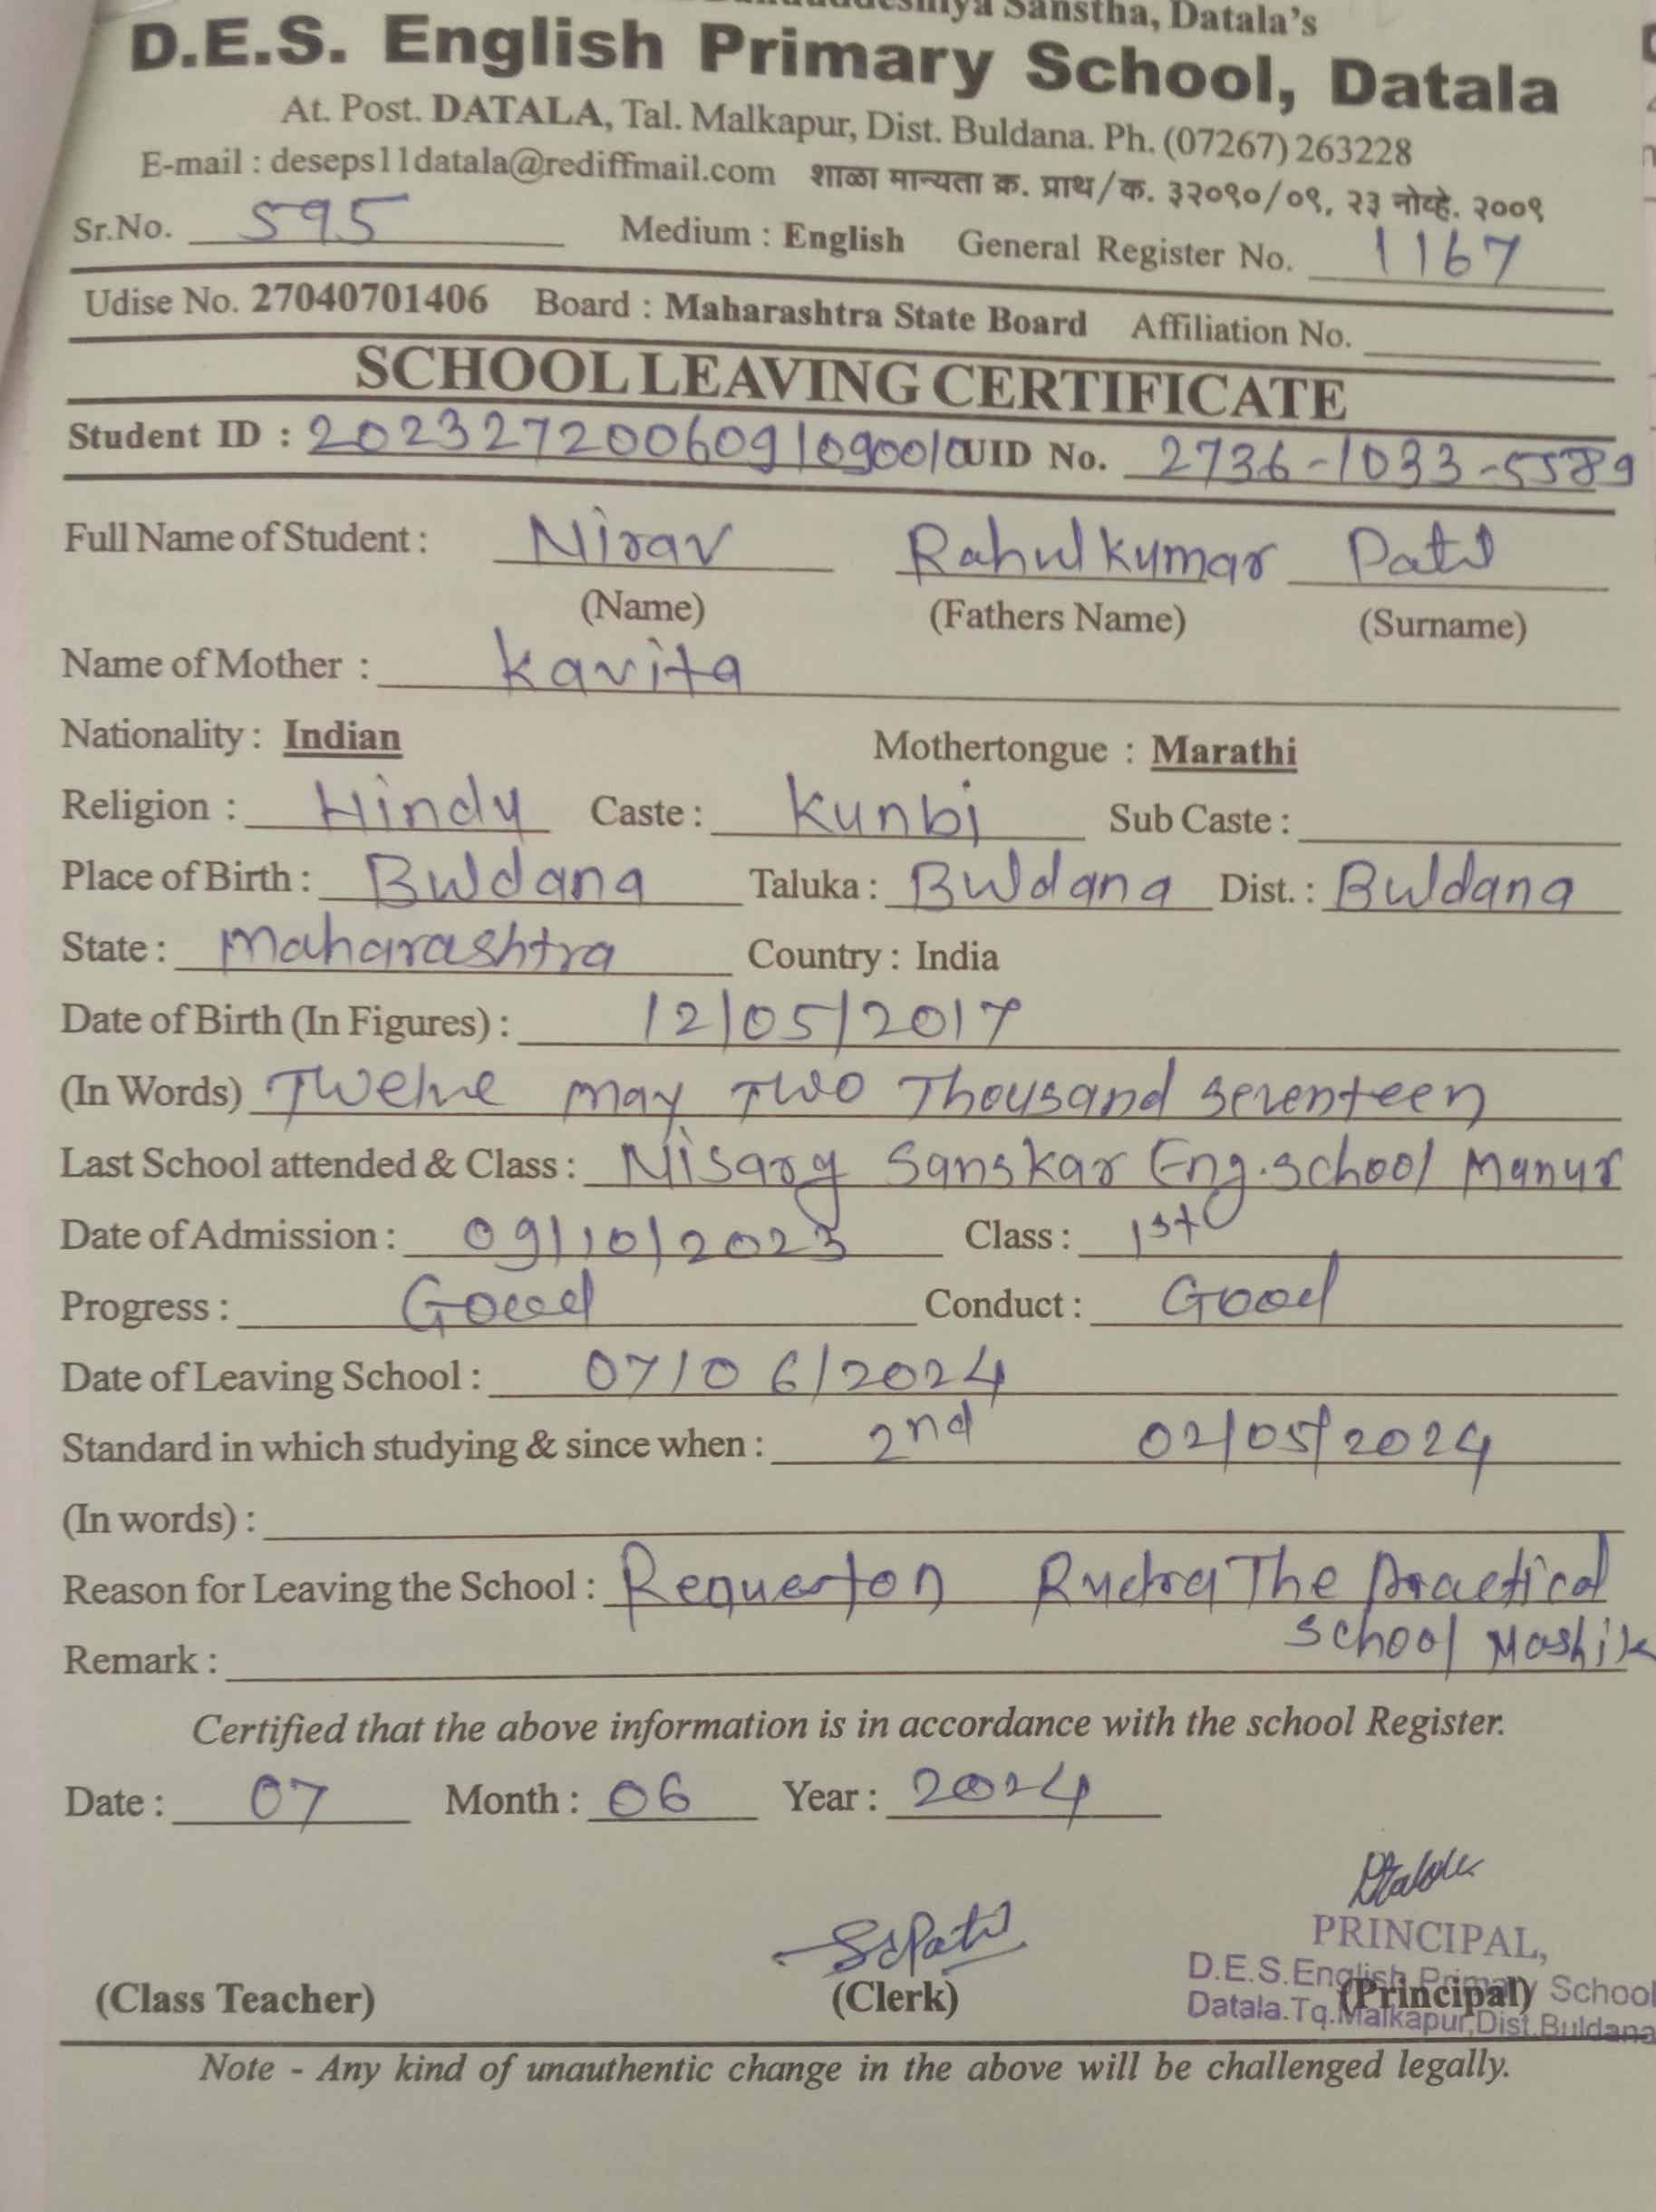 Sanstha, Datala's
D.E.S. English Primary School, Datala
At. Post. DATALA, Tal. Malkapur, Dist. Buldana. Ph. (07267) 263228
E-mail : deseps11datala@rediffmail.com शाळा मान्यता क्र. प्राथ/क. ३२०९०/०९, २३ नोव्हे. २००९
Sr.No. 595 Medium : English General Register No. 1167
Udise No. 27040701406 Board : Maharashtra State Board Affiliation No.
SCHOOL LEAVING CERTIFICATE
Student ID : UID No. 2736-1033-5589
Full Name of Student : Nirav Rahulkumar Patil
(Name) (Fathers Name) (Surname)
Name of Mother : Kavita
Nationality : Indian Mothertongue : Marathi
Religion : Hindu Caste : Kunbi Sub Caste :
Place of Birth : Buldana Taluka : Buldana Dist. : Buldana
State : Maharashtra Country : India
Date of Birth (In Figures) : 12/05/2017
(In Words) Twelve may Two Thousand Seventeen
Last School attended & Class : Nisarg Sanskar Eng. School Manur
Date of Admission : 09/10/2023 Class : 1st
Progress : Good Conduct : Good
Date of Leaving School : 07/06/2024
Standard in which studying & since when : 2nd 02/05/2024
(In words) :
Reason for Leaving the School : Request on Rudra The Practical
School Nashik
Remark :
Certified that the above information is in accordance with the school Register.
Date : 07 Month : 06 Year : 2024
PRINCIPAL,
D.E.S. English Primary School
Datala. Tq. Malkapur, Dist. Buldana
(Class Teacher) (Clerk) (Principal)
Note - Any kind of unauthentic change in the above will be challenged legally.